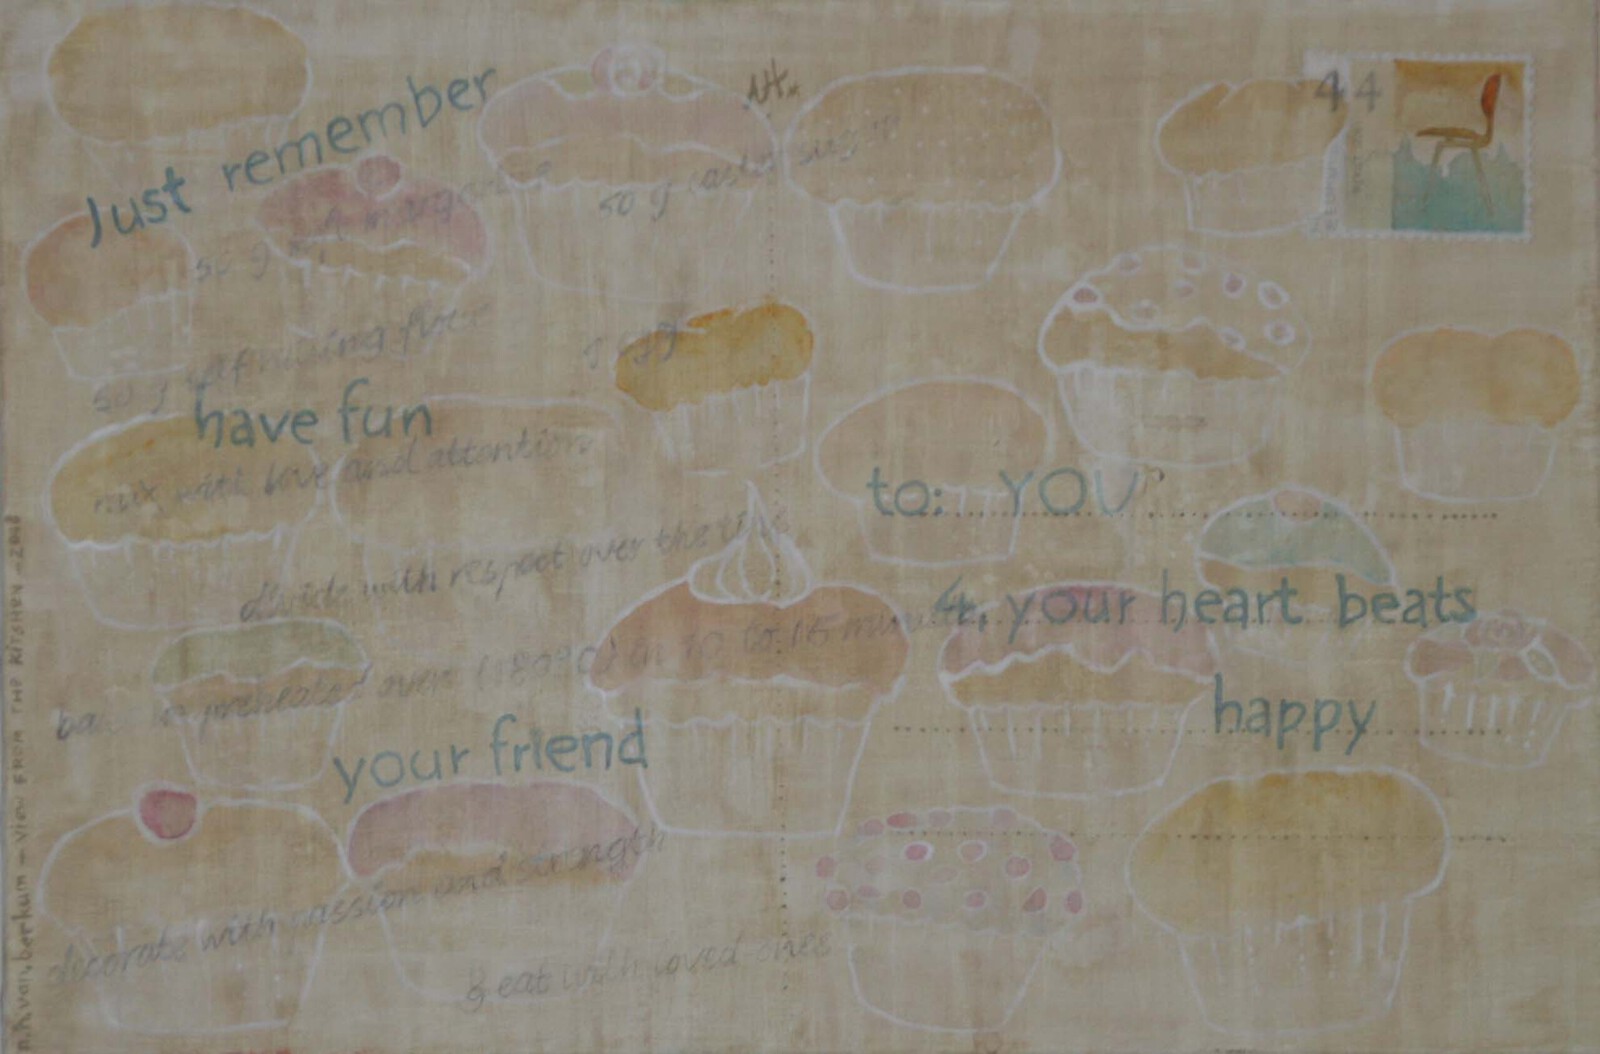 Just remember
50 g margarine
50 g caster sugar
50 g self raising flour
1 egg
have fun
mix with love and attention
divide with respect over the tins
to: YOU
4, your heart beats
bake in preheated oven (180°C) in 10 to 15 minutes
happy
your friend
decorate with passion and strength
& eat with loved-ones
44
VIEW FROM THE KITCHEN